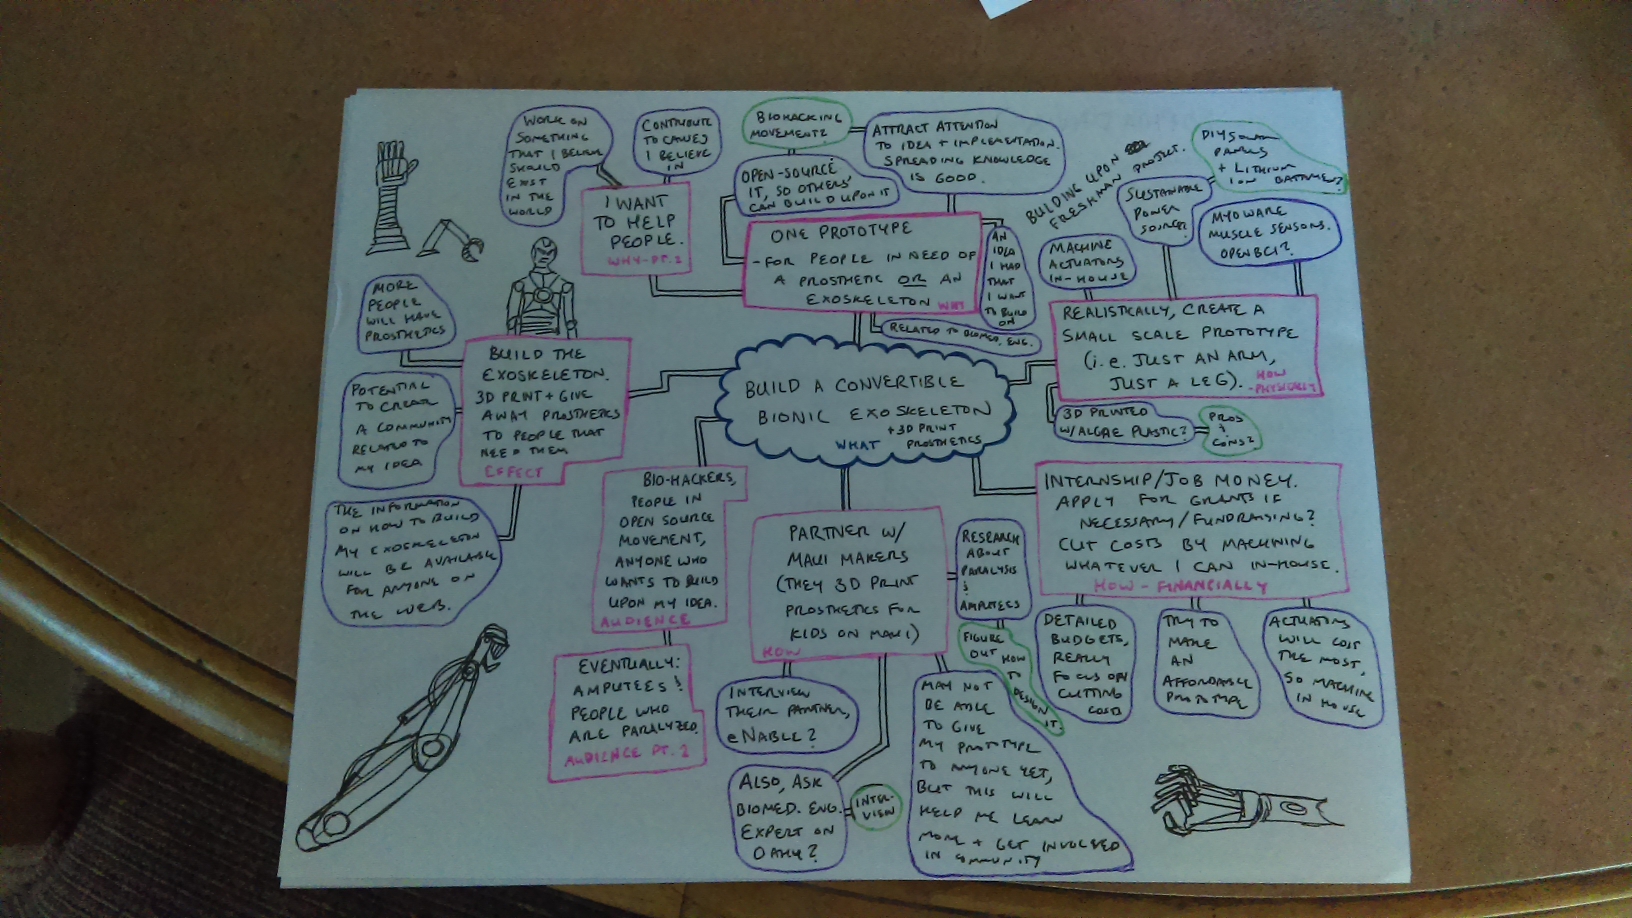 WORK ON
SOMETHING
THAT I BELIEVE
SHOULD
EXIST
IN THE
WORLD
CONTRIBUTE
TO CAUSES
I BELIEVE
IN
I WANT
TO HELP
PEOPLE.
WHY-PT. 2
BIOHACKING
MOVEMENT?
ATTRACT ATTENTION
TO IDEA + IMPLEMENTATION.
SPREADING KNOWLEDGE
IS GOOD.
OPEN-SOURCE
IT, SO OTHERS
CAN BUILD UPON IT
ONE PROTOTYPE
-FOR PEOPLE IN NEED OF
A PROSTHETIC OR AN
EXOSKELETON WHY
AN
IDEA
I HAD
THAT
I WANT
TO BUILD
ON
RELATED TO BIOMED. ENG.
BUILDING UPON
FRESHMAN PROJECT.
DIY SOLAR
PANELS
+ LITHIUM
ION BATTERIES?
SUSTAINABLE
POWER
SOURCE?
MYOWARE
MUSCLE SENSORS.
OPENBCI?
MACHINE
ACTUATORS
IN-HOUSE
REALISTICALLY, CREATE A
SMALL SCALE PROTOTYPE
(i.e. JUST AN ARM,
JUST A LEG).
HOW
-PHYSICALLY
3D PRINTED
W/ALGAE PLASTIC?
PROS
&
CONS?
MORE
PEOPLE
WILL HAVE
PROSTHETICS
BUILD THE
EXOSKELETON.
3D PRINT + GIVE
AWAY PROSTHETICS
TO PEOPLE THAT
NEED THEM
EFFECT
POTENTIAL
TO CREATE
A COMMUNITY
RELATED TO
MY IDEA
THE INFORMATION
ON HOW TO BUILD
MY EXOSKELETON
WILL BE AVAILABLE
FOR ANYONE ON
THE WEB.
BUILD A CONVERTIBLE
BIONIC EXOSKELETON
+ 3D PRINT
PROSTHETICS
WHAT
BIO-HACKERS,
PEOPLE IN
OPEN SOURCE
MOVEMENT,
ANYONE WHO
WANTS TO BUILD
UPON MY IDEA.
AUDIENCE
EVENTUALLY:
AMPUTEES!
PEOPLE WHO
ARE PARALYZED.
AUDIENCE PT. 2
PARTNER W/
MAUI MAKERS
(THEY 3D PRINT
PROSTHETICS FOR
KIDS ON MAUI)
HOW
RESEARCH
ABOUT
PARALYSIS
&
AMPUTEES
FIGURE
OUT HOW
TO
DESIGN
IT
INTERVIEW
THEIR PARTNER,
eNABLE?
ALSO, ASK
BIOMED. ENG.
EXPERT ON
OAHU?
INTER-
VIEW
MAY NOT
BE ABLE
TO GIVE
MY PROTOTYPE
TO ANYONE YET,
BUT THIS WILL
HELP ME LEARN
MORE + GET INVOLVED
IN COMMUNITY
INTERNSHIP/JOB MONEY.
APPLY FOR GRANTS IF
NECESSARY/FUNDRAISING?
CUT COSTS BY MACHINING
WHATEVER I CAN IN-HOUSE.
HOW - FINANCIALLY
DETAILED
BUDGETS,
REALLY
FOCUS ON
CUTTING
COSTS
TRY TO
MAKE
AN
AFFORDABLE
PROTOTYPE
ACTUATORS
WILL COST
THE MOST,
SO MACHINE
IN HOUSE